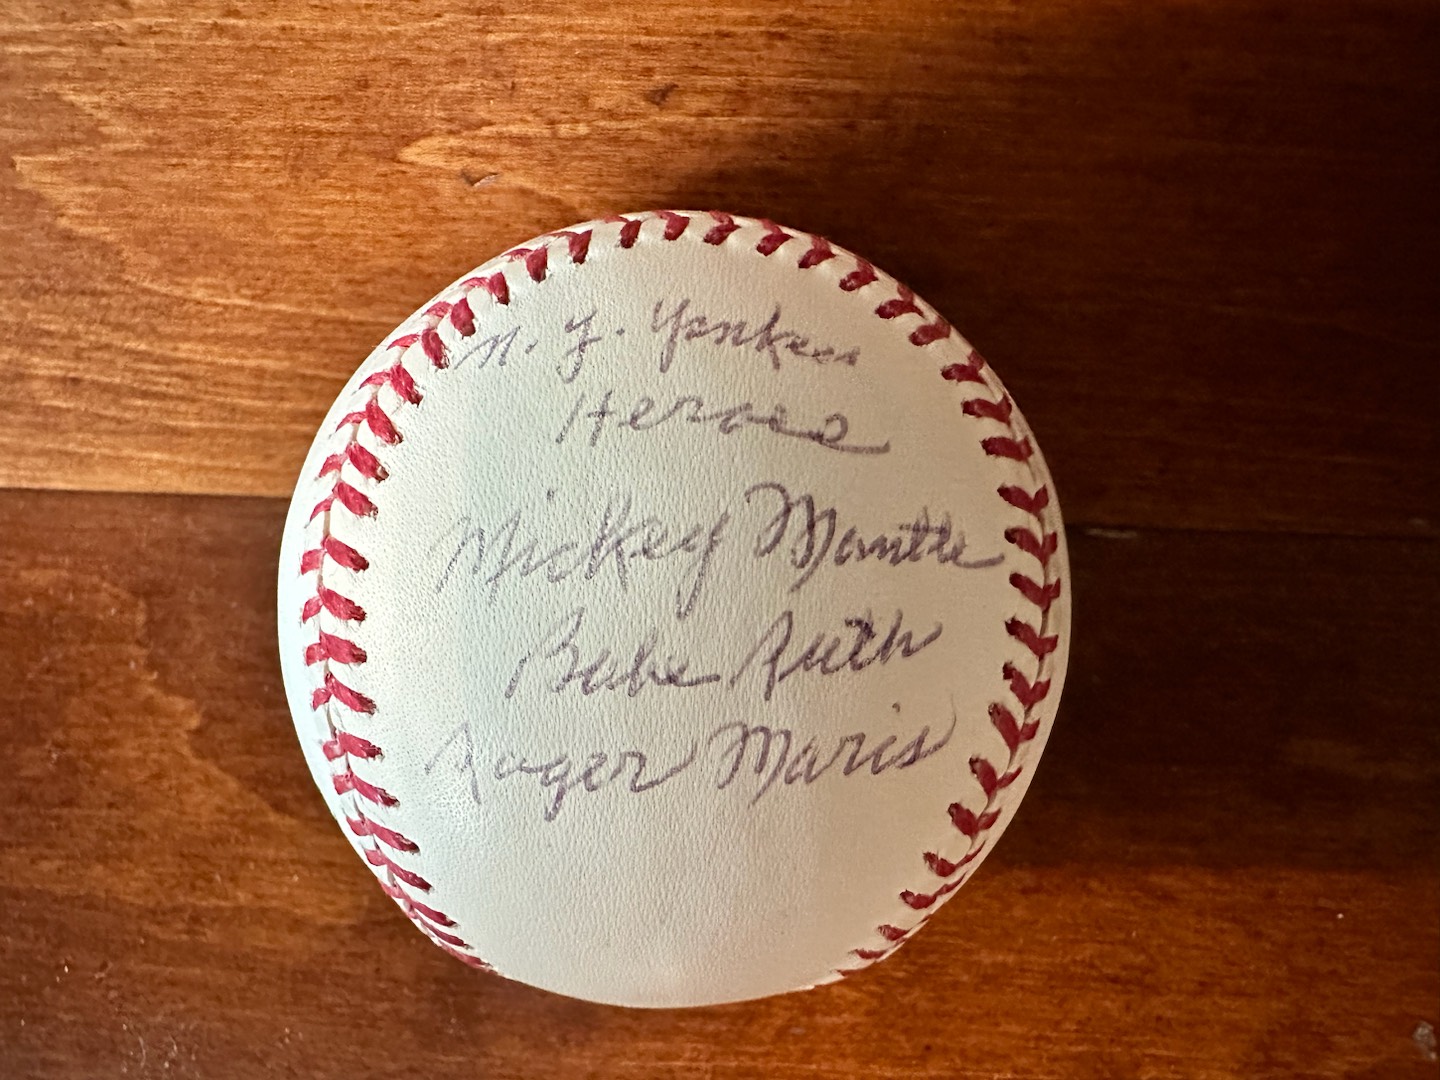 N. Y. Yankees
Heroes
Mickey Mantle
Babe Ruth
Roger Maris